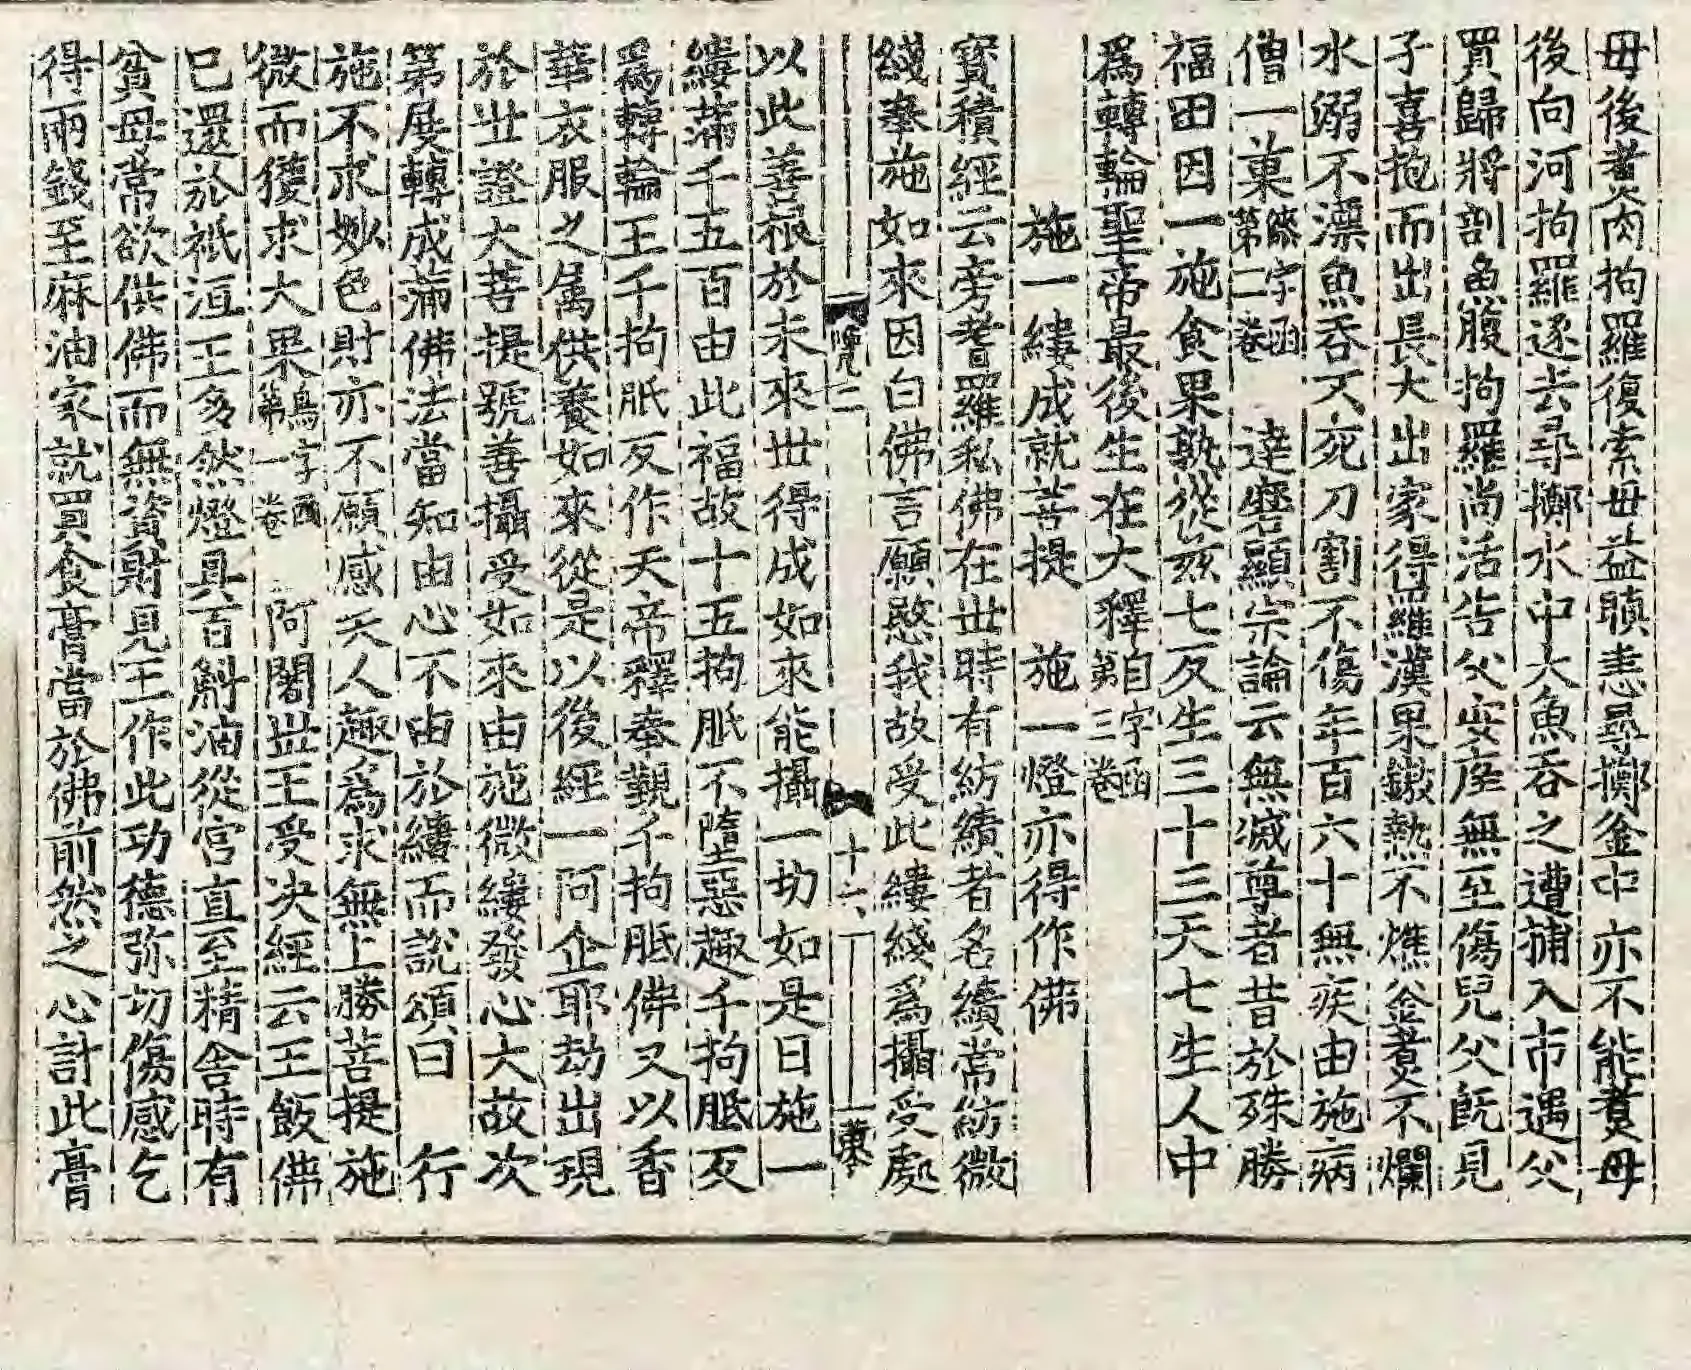 母後煮肉拘羅復索母益瞋恚尋擲釜中亦不能煑母
後向河拘羅逐去尋擲水中大魚吞之遭捕入市遇父
買歸將剖魚腹拘羅尚活告父安庠無至傷兒父既見
子喜抱而出長大出家得羅漢果鏊熱不燋釜煑不爛
水溺不漂魚吞不死刀割不傷年百六十無疾由施病
僧一菓 第二卷 達磨顯宗論云無滅尊者昔於殊勝
福田因一施食果熟從茲七反生三十三天七生人中
爲轉輪聖帝最後生在大釋 自字函第三卷
施一縷成就菩提 施一燈亦得作佛
寶積經云旁耆羅私佛在世時有紡績者名續常紡微
綫奉施如來因白佛言願愍我故受此縷綫爲攝受處
二 十六
以此善根於未來世得成如來能攝一切如是日施一
縷滿千五百由此福故十五拘胝不墮惡趣千拘胝反
爲轉輪王千拘胝反作天帝釋奉覲千拘胝佛又以香
華衣服之属供養如來從是以後經一阿企耶劫出現
於世證大菩提號善攝受如來由施微縷發心大故次
第展轉成滿佛法當知由心不由於縷而說頌曰 行
施不求妙色財亦不願感天人趣爲求無上勝菩提施
微而獲求大果 鳥字函第一卷 阿闍世王受决經云王飯佛
已還於祇洹王多然燈具百斛油從宮直至精舍時有
貧母常欲供佛而無資財見王作此功德弥切傷感乞
得兩錢至麻油家就買食膏當於佛前然之心計此膏